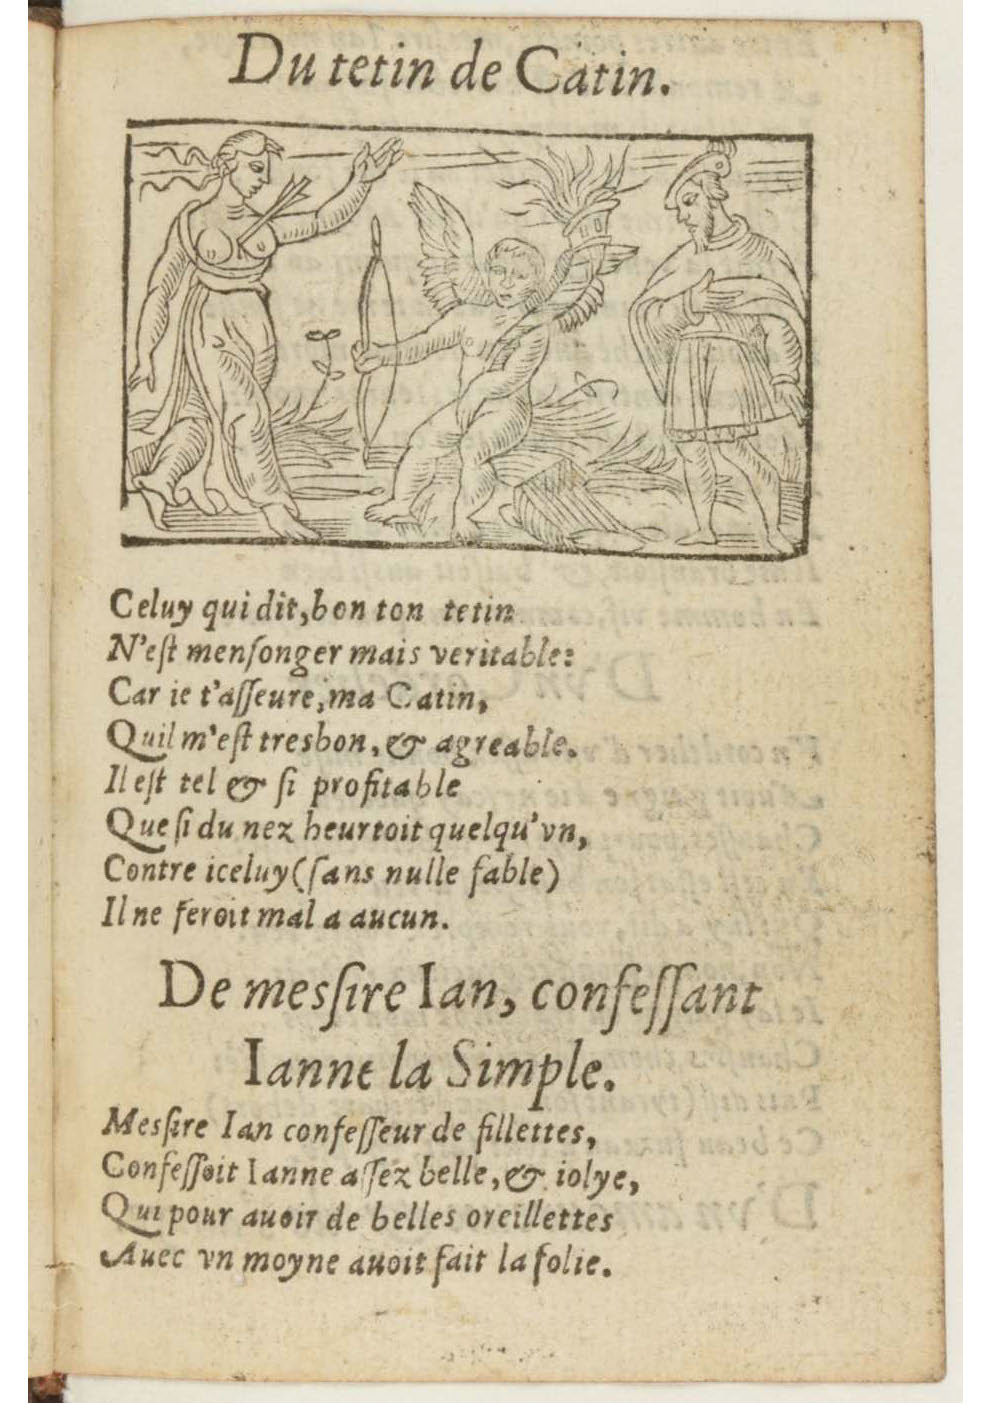 Du tetin de Catin.
Celuy qui dit, bon ton tetin
N'eſt menſonger mais veritable:
Car ie t'aſſeure, ma Catin,
Quil m'eſt tresbon, & agreable.
Il eſt tel & ſi profitable
Que ſi du nez heurtoit quelqu'vn,
Contre iceluy (ſans nulle fable)
Il ne feroit mal a aucun.
De mesſire Ian, confeſſant
Ianne la Simple.
Mesſire Ian confeſſeur de fillettes,
Confeſſoit Ianne aſſez belle, & iolye,
Qui pour auoir de belles oreillettes
Auec vn moyne auoit fait la folie.